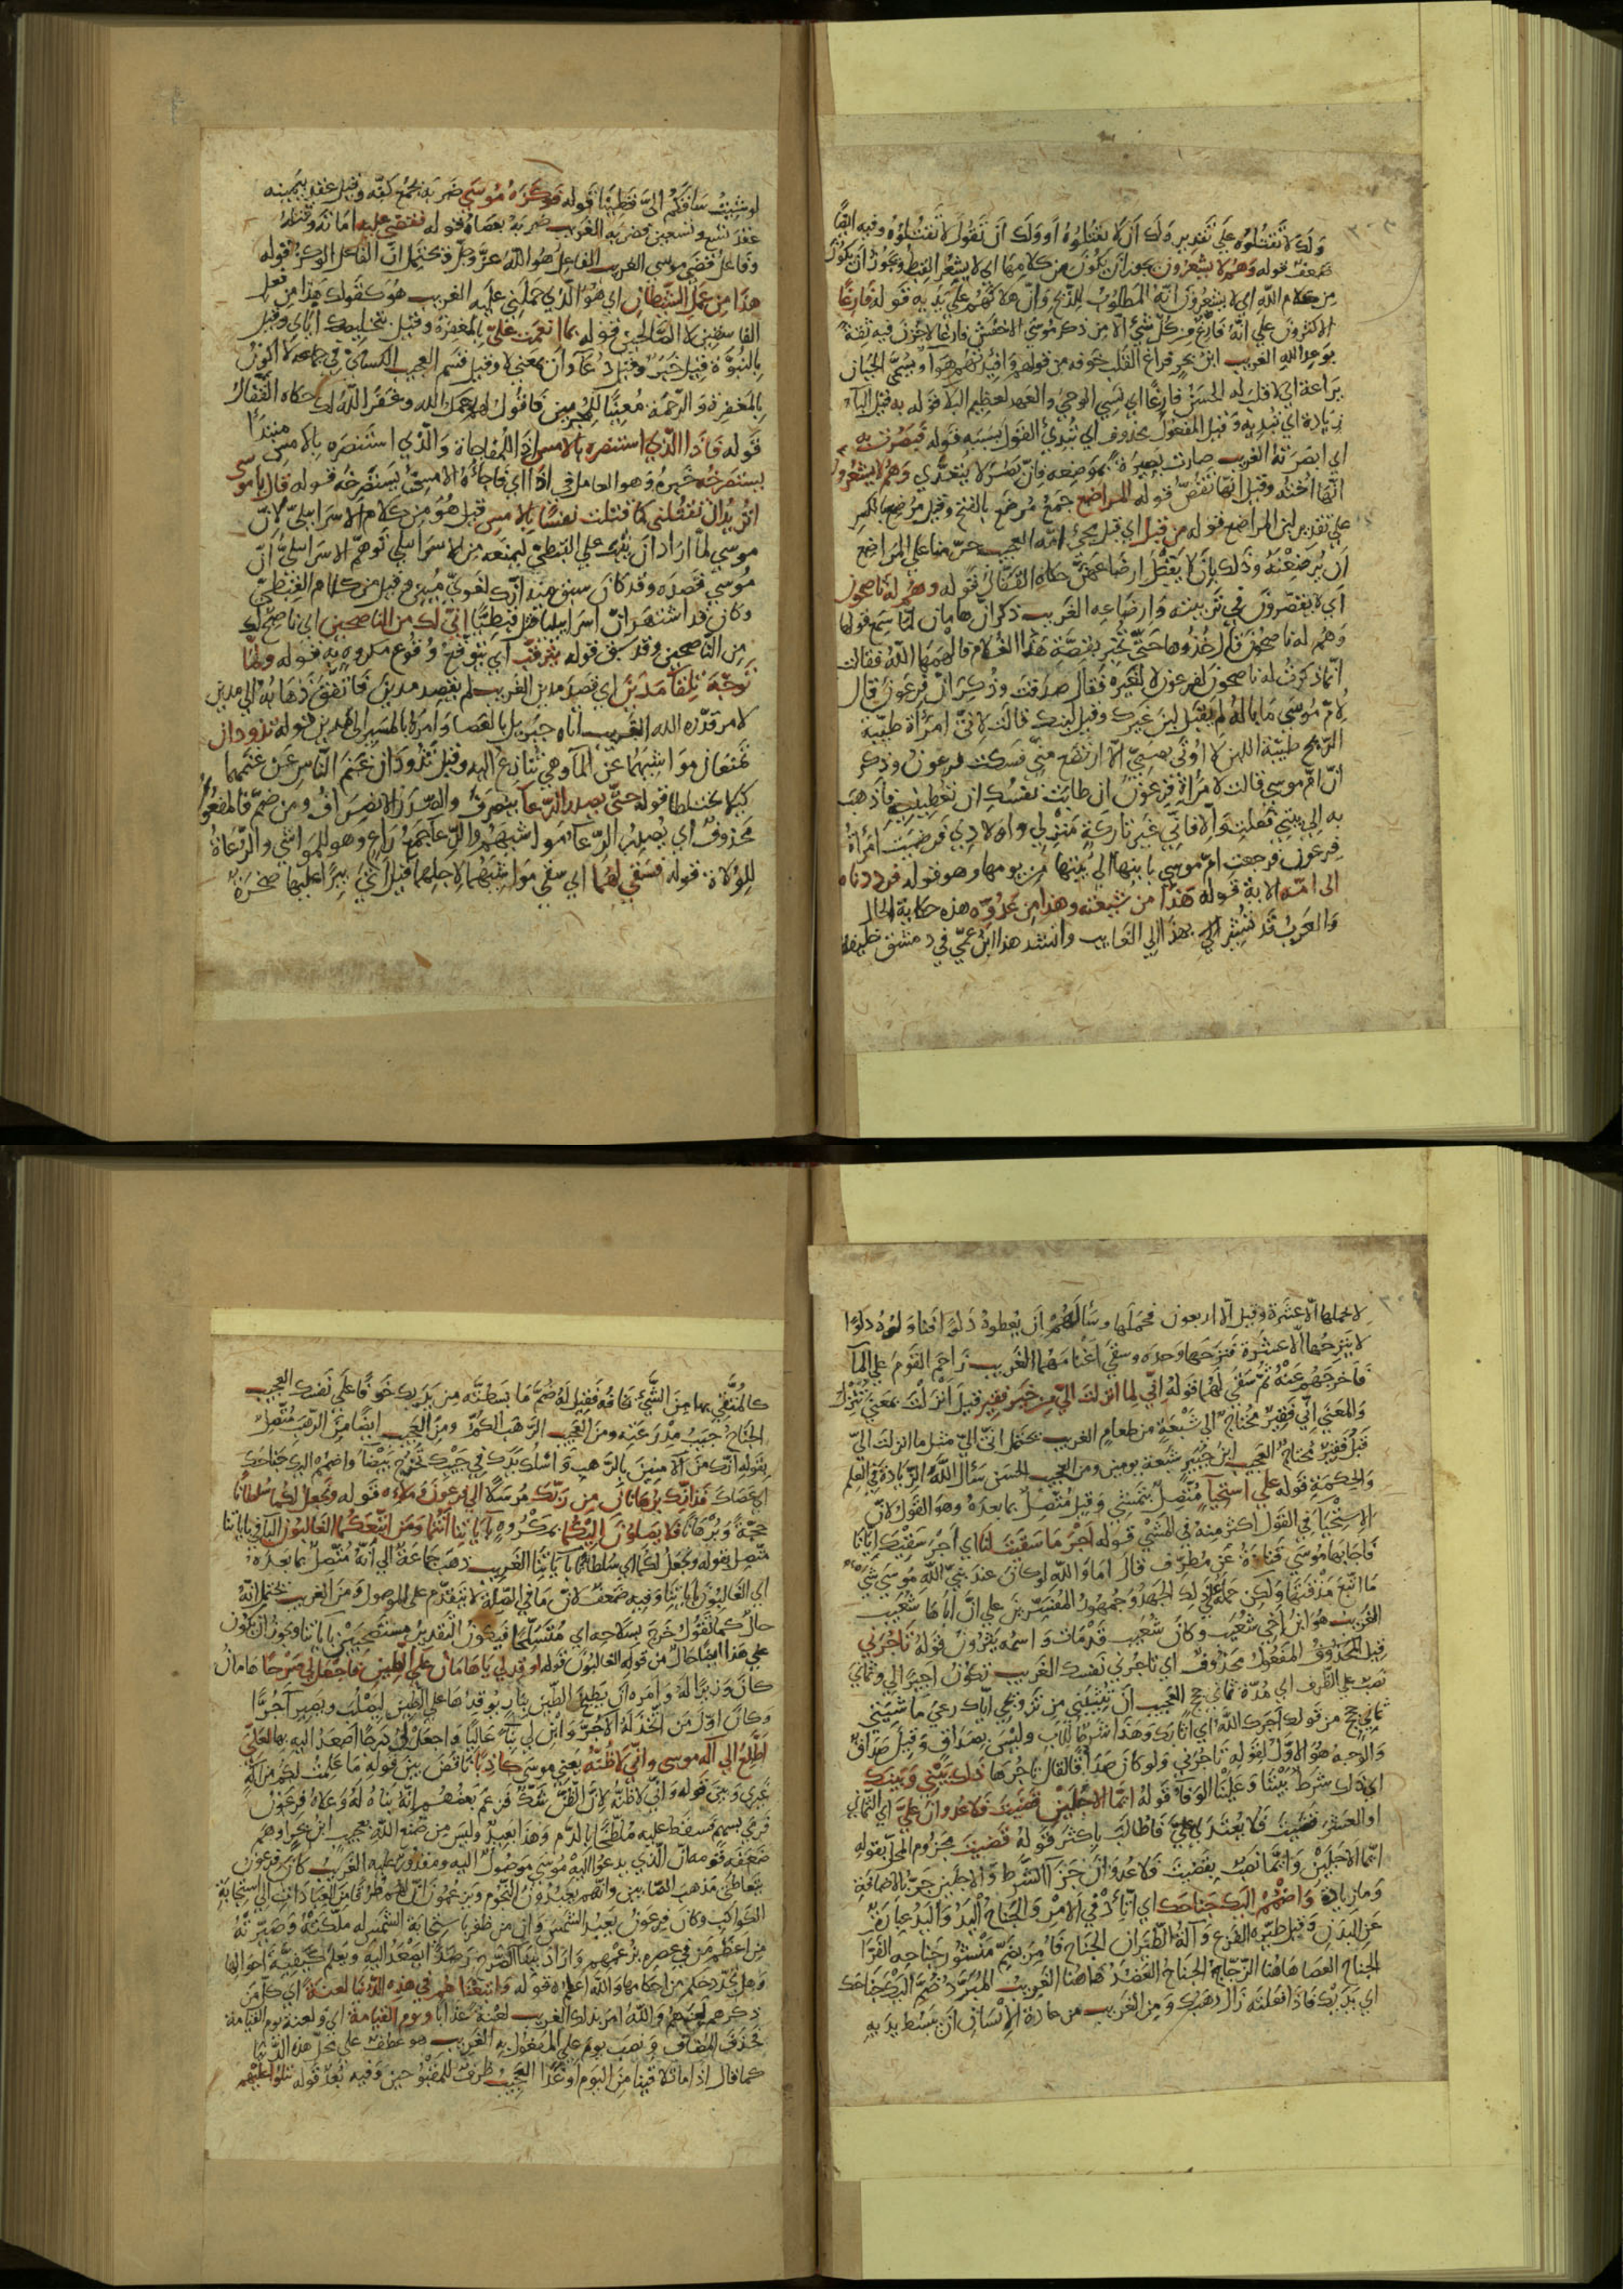 ولك لا تقتلوه على تقدير ولك أن لا يقتلوه أو ولك أن تقول لا تقتلوه وفيه ايضًا
ضعف قوله وهم لا يشعرون يجوز أن يكون من كلامها اي لا يشعر القبط ويجوز أن يكون
من كلام الله اي لا يشعرون انّه المطلوب للذبح وانّ هلاكهم على يديه قوله فارغًا
الاكثرون على انّه فارغ من كلّ شيء الّا من ذكر موسى الاخفش فارغًا لا حزن فيه ثقة
بوعد الله الغريب ابن بحر فراغ القلب خوفه من قوله وافئدتهم هواء ويسمّى الجبان
يراعة اي لا قلب له الحسن فارغًا اي نسي الوحي والعهد لعظيم البلاء قوله به قيل الباء
زيادة اي تبديه وقيل المفعول محذوف اي تبدي القول بسببه قوله فبصرت به
اي ابصرته الغريب صارت بصيرة بموضعه فانّ بصر لا يتعدّي وهم لا يشعرون
انّها اخته وقيل انّها تقصّ قوله المراضع جمع مرضع بالفتح وقيل مرضع بالكسر
على تقدير لبن المراضع قوله من قبل اي قبل مجيء امّه العجيب حرّمنا على المراضع
أن يرضعنه وذلك بأن لا يقبل ارضاعهنّ حكاه القفّال قوله وهم له ناصحون
اي لا يقصّرون في تربيته وارضاعه الغريب ذكر انّ هامان لمّا سمع قولها
وهم له ناصحون قال خذوها حتّى تخبر بقصّة هذا الغلام فالهمها الله فقالت
انما ذكرت له ناصحون لفرعون لا لغيره فقال صدقت وذكر انّ فرعون قال
لامّ موسى ما باله لم يقبل لبن غيرك وقبل لبنك قالت لانّي امرأة طيّبة
الريح طيّبة اللبن لا اوتى بصبيّ الّا ارتضع منّي فسكت فرعون وذكر
انّ امّ موسى قالت لامرأة فرعون ان طابت نفسك ان تعطينيه فأذهب
به الى بيتي فعلت والّا فانّي غير تاركة منزلي واولادي فرضيت امرأة
فرعون فرجعت امّ موسى بابنها الى بيتها من يومها وهو قوله فرددناه
الى امّه الاية قوله هذا من شيعته وهذا من عدوّه هذه حكاية الحال
والعرب قد تشير الى بهذا الى الغايب وانشد هذا ابن عمّي في دمشق خليفة
لو شئت ساقكم الىّ قطينا قوله فوكزه موسى ضربه بجمع كفّه وقيل عقد بيمينه
عقد تسع وتسعين فضربه الغريب ضربه بعصاه قوله فقضى عليه اماته وقتله
وفاعل قضى موسى الغريب الفاعل هو الله عزّ وجلّ ويحتمل انّ الفاعل الوكز قوله
هذا من عمل الشيطان اي هو الّذي حملني عليه الغريب هو كقولك هذا من فعل
الفاسقين لا الصالحين قوله بما انعمت علىّ بالمغفرة وقيل بتخليصك ايّاي وقيل
بالنبوّة قيل خبر وقيل دعاء وأن بمعنى لا وقيل قسم العجيب الكسائي في جماعة لا اكون
بالمغفرة والرحمة معينًا للمجرمين فاقول لعمرك الله وغفر الله لك حكاه القفّال
قوله فاذا الّذي استنصره بالامس اذا للمفاجاة والّذي استنصره بالامس مبتدأ
يستصرخه خبره وهو العامل في اذا اي فاجأه الامس يستصرخه قوله قال يا موسى
اتريد أن تقتلني كما قتلت نفسًا بالامس قيل هو من كلام الاسراييليّ لانّ
موسى لمّا اراد ان يبطش على القبطيّ ليمنعه من الاسراييلي توهّم الاسراييليّ انّ
موسى قصده وقد كان سبق منه انّك لغويّ مبين وقيل من كلام القبطيّ
وكان قد اشتهر انّ اسراييليا قتل قبطيًّا انّي لك من الناصحين اي ناصح لك
من النّاصحين وقد سبق قوله يترقّب اي يتوقّع وقوع مكروه به قوله ولمّا
توجّه تلقاء مدين اي قصد مدين الغريب لم يقصد مدين فاتّفق ذهابه الى مدين
لامر قدّره الله الغريب اتاه جبريل بالعصا وامره بالمسير الى مدين قوله تذودان
تمنعان مواشيهما عن الماء وهي تنازع اليه وقيل تذودان غنم النّاس عن غنمهما
كيلا تختلطا قوله حتّى يصدر الرّعاء ينصرف والصّدر الانصراف ومن ضمّ فالمفعول
محذوف اي يصدر الرّعاء مواشيهم والرّعاء جمع راع وهو للمواشي والرّعاة
للولاة قوله فسقى لهما اي سقى مواشيهما لاجلهما قيل اتى بئرًا عليها صخرة
لا يحملها الّا عشرة وقيل الّا اربعون فحملها وسألهم أن يعطوه دلوًا فناولوه دلوًا
لا ينزحها الّا عشرة فنزحها وحده وسقى أغنامهما الغريب زاحم القوم على الماء
فأخرجهم عنه ثمّ سقى لهما قوله انّي لما انزلت اليّ من خير فقير قيل أنزلت بمعنى تنزل
والمعنى انّي فقير محتاج الى شبعة من طعام الغريب يحتمل انّي الىّ مثل ما انزلت الىّ
قبل فقير محتاج العجيب ابن جبير شبعة يومين ومن العجيب الحسن سأل الله الزيادة في العلم
والحكمة قوله على استحياء متّصل بتمشي وقيل متّصل بما بعده وهو القول لانّ
الاستحياء في القول اكثر منه في المشي قوله اجر ما سقيت لنا اي اجر سقيك ايّانا
فاجابها موسى قتادة عن مطرّف قال اما والله لو كان عند نبيّ الله موسى شيء
ما اتبع مذقتها ولكن حمله على ذلك الجهد وجمهور المفسّرين على انّ اباها شعيب
الغريب هو ابن أخي شعيب وكان شعيب قد مات واسمه يثرون قوله تأجرني
قيل المحذوف المفعول محذوف اي تأجرني نفسك الغريب تكون اجيرًا لي وثماني
نصب على الظرف اي مدّة ثماني حجج العجيب أن تثيبني من تزويجي ايّاك رعي ماشيتي
ثماني حجج من قولك اجرك الله اي اثابك وهذا شرط للاب وليس بصداق وقيل صداق
والوجه هو الاوّل لقوله تأجرني ولو كان صداقًا لقال تأجرها ذلك بيني وبينك
اي ذلك شرط بيننا وعلينا الوفاء قوله ايّما الاجلين قضيت فلا عدوان علىّ اي الثماني
او العشر قضيت فلا يعتدى علىّ فاطالب باكثر قوله قضيت مجزوم المحلّ بقوله
ايّما الاجلين وايّما نصب بقضيت فلا عدوان جزاء الشرط والاجلين جرّ بالاضافة
وما زيادة واضمم اليك جناحك اي اتّاد في الامر والجناح اليد واليد عبارة
عن البدن وقيل طيّره الفزع وآلة الطيران الجناح فامر بضمّ منشور جناحه الفرّاء
الجناح العصا هاهنا الزجّاج الجناح العضد هاهنا الغريب المبرّد ضمّ اليك جناحك
اي يديك فاذا فعلته زال رهبك ومن الغريب من عادة الانسان ان يبسط يديه
كالمتّقي بهما من الشّيء يخافه فقيل له ضمّ ما بسطته من يديك خوفًا على نفسك العجيب
الجناح جيب مدرعته ومن العجيب الرّهب الكمّ ومن العجيب ايضًا من الرّهب متّصل
بقوله انّك من الآمنين بالرّهب واسلك يدك في جيبك تخرج بيضاء واضمم اليك جناحك
اي عصاك فذانك برهانان من ربّك مرسلًا الى فرعون وملاءه قوله ونجعل لكما سلطانًا
حجّة وبرهانًا فلا يصلون اليكما بمكروه بآياتنا أنتما ومن اتّبعكما الغالبون الباء في باياتنا
متّصل بقوله ونجعل لكما اي سلطانًا بآياتنا الغريب ذهب جماعة الى انّه متّصل بما بعده
اي الغالبون باياتنا وفيه ضعف لانّ ما في الصلة لا يتقدّم على الموصول ومن الغريب يحتمل انّه
حال كما تقول خرج بسلاحه اي متسلّحًا فيكون التقدير مستصحبين باياتنا ويجوز ان يكون
على هذا ايضًا حال من قوله الغالبون قوله اوقد لي يا هامان على الطين فاجعل لي صرحًا هامان
كان وزيرًا له وامره أن يطبخ الطين بنار يوقدها على الطين ليصلب ويصير آجرًّا
وكان اوّل من اتّخذ له الآجرّ وابن لي بناء عاليًا واجعل لي درجًا اصعد اليه بها لعلّي
اطّلع الى اله موسى وانّي لاظنّه يعني موسى كاذبًا تناقض بين قوله ما علمت لكم من اله
غيري وبين قوله وانّي لاظنّه لانّ الظنّ شكّ فزعم بعضهم انّه بناه له وعلاه فرعون
فرمى بسهم فسقط عليه ملطّخًا بالدّم وهذا بعيد وليس من صنع الله بعجيب ابن بحر اوهم
ضعفه قومه انّ الّذي يدعو اليه موسى موصول اليه ومقدور عليه الغريب كان فرعون
يتعاطى مذهب الصّابئين وانّهم يعبدون النجوم ويزعمون انّ لهم طرقًا من العبادات الى استجابة
الكواكب وكان فرعون يعبد الشمس وانّ من ظفر باستجابة الشمس له ملّكته وصيّرته
من اعظم من في عصره بزعمهم واراد بهذا الصّرح رصدًا ليصعد اليه ويعلم كيفيّة احوالها
وهل تجدّد حكم من احكامها والله اعلم قوله واتبعناهم في هذه الدّنيا لعنة اي كلّ من
ذكرهم لعنهم والله امر بذلك الغريب لعنة عذابا ويوم القيامة اي ولعنة يوم القيامة
فحذف المضاف ونصب يوم على المفعول به الغريب هو عطف على محلّ هذه الدّنيا
كما قال اذا ما تلاقينا من اليوم او غدًا العجيب ظرف للمقبوحين وفيه بعد قوله تتلوا عليهم